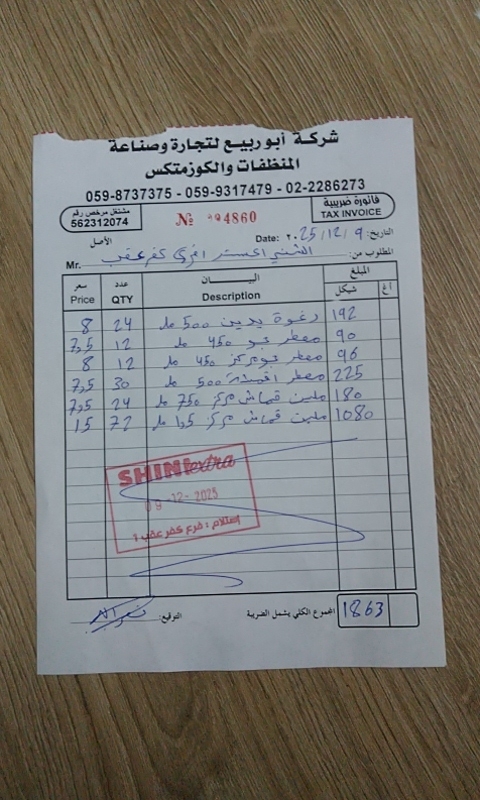 شركة أبو ربيع لتجارة وصناعة
المنظفات والكوزمتكس
059-8737375 - 059-9317479 - 02-2286273
مشتغل مرخص رقم
562312074
№ 004860
فاتورة ضريبية
TAX INVOICE
الأصل
Date: ٢٠25/12/9 التاريخ:
Mr. الشني اكسترا كفر عقب المطلوب من:
سعر Price عدد QTY البيـــان Description المبلغ شيكل أغ
8 24 رغوة يدين 500 مل 192
7,5 12 معطر جو 450 مل 90
8 12 معطر جو مركز 450 مل 96
7,5 30 معطر 500 مل 225
7,5 24 ملين قماش مركز 750 مل 180
15 72 ملين قماش مركز 1,5 1080
SHINI extra
09 -12- 2025
إستلام : فرع كفر عقب 1
التوقيع: المجموع الكلي يشمل الضريبة 1863